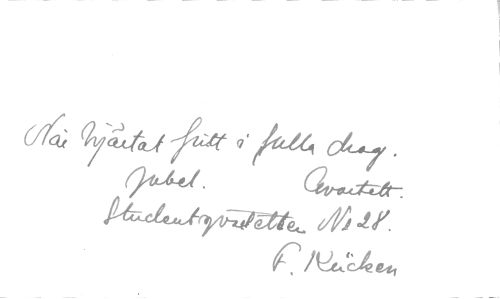 När hjärtat fritt i fulla drag.
Jubel. Qvartett.
Studentqvartetten No 28.
F. Kücken